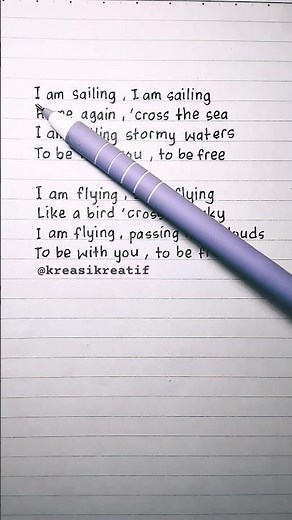 I am sailing, I am sailing
again, 'cross the sea
I stormy waters
To be you, to be free
I am flying, flying
Like a bird 'cross
I am flying, passing
To be with you, to be
@kreasikreatif